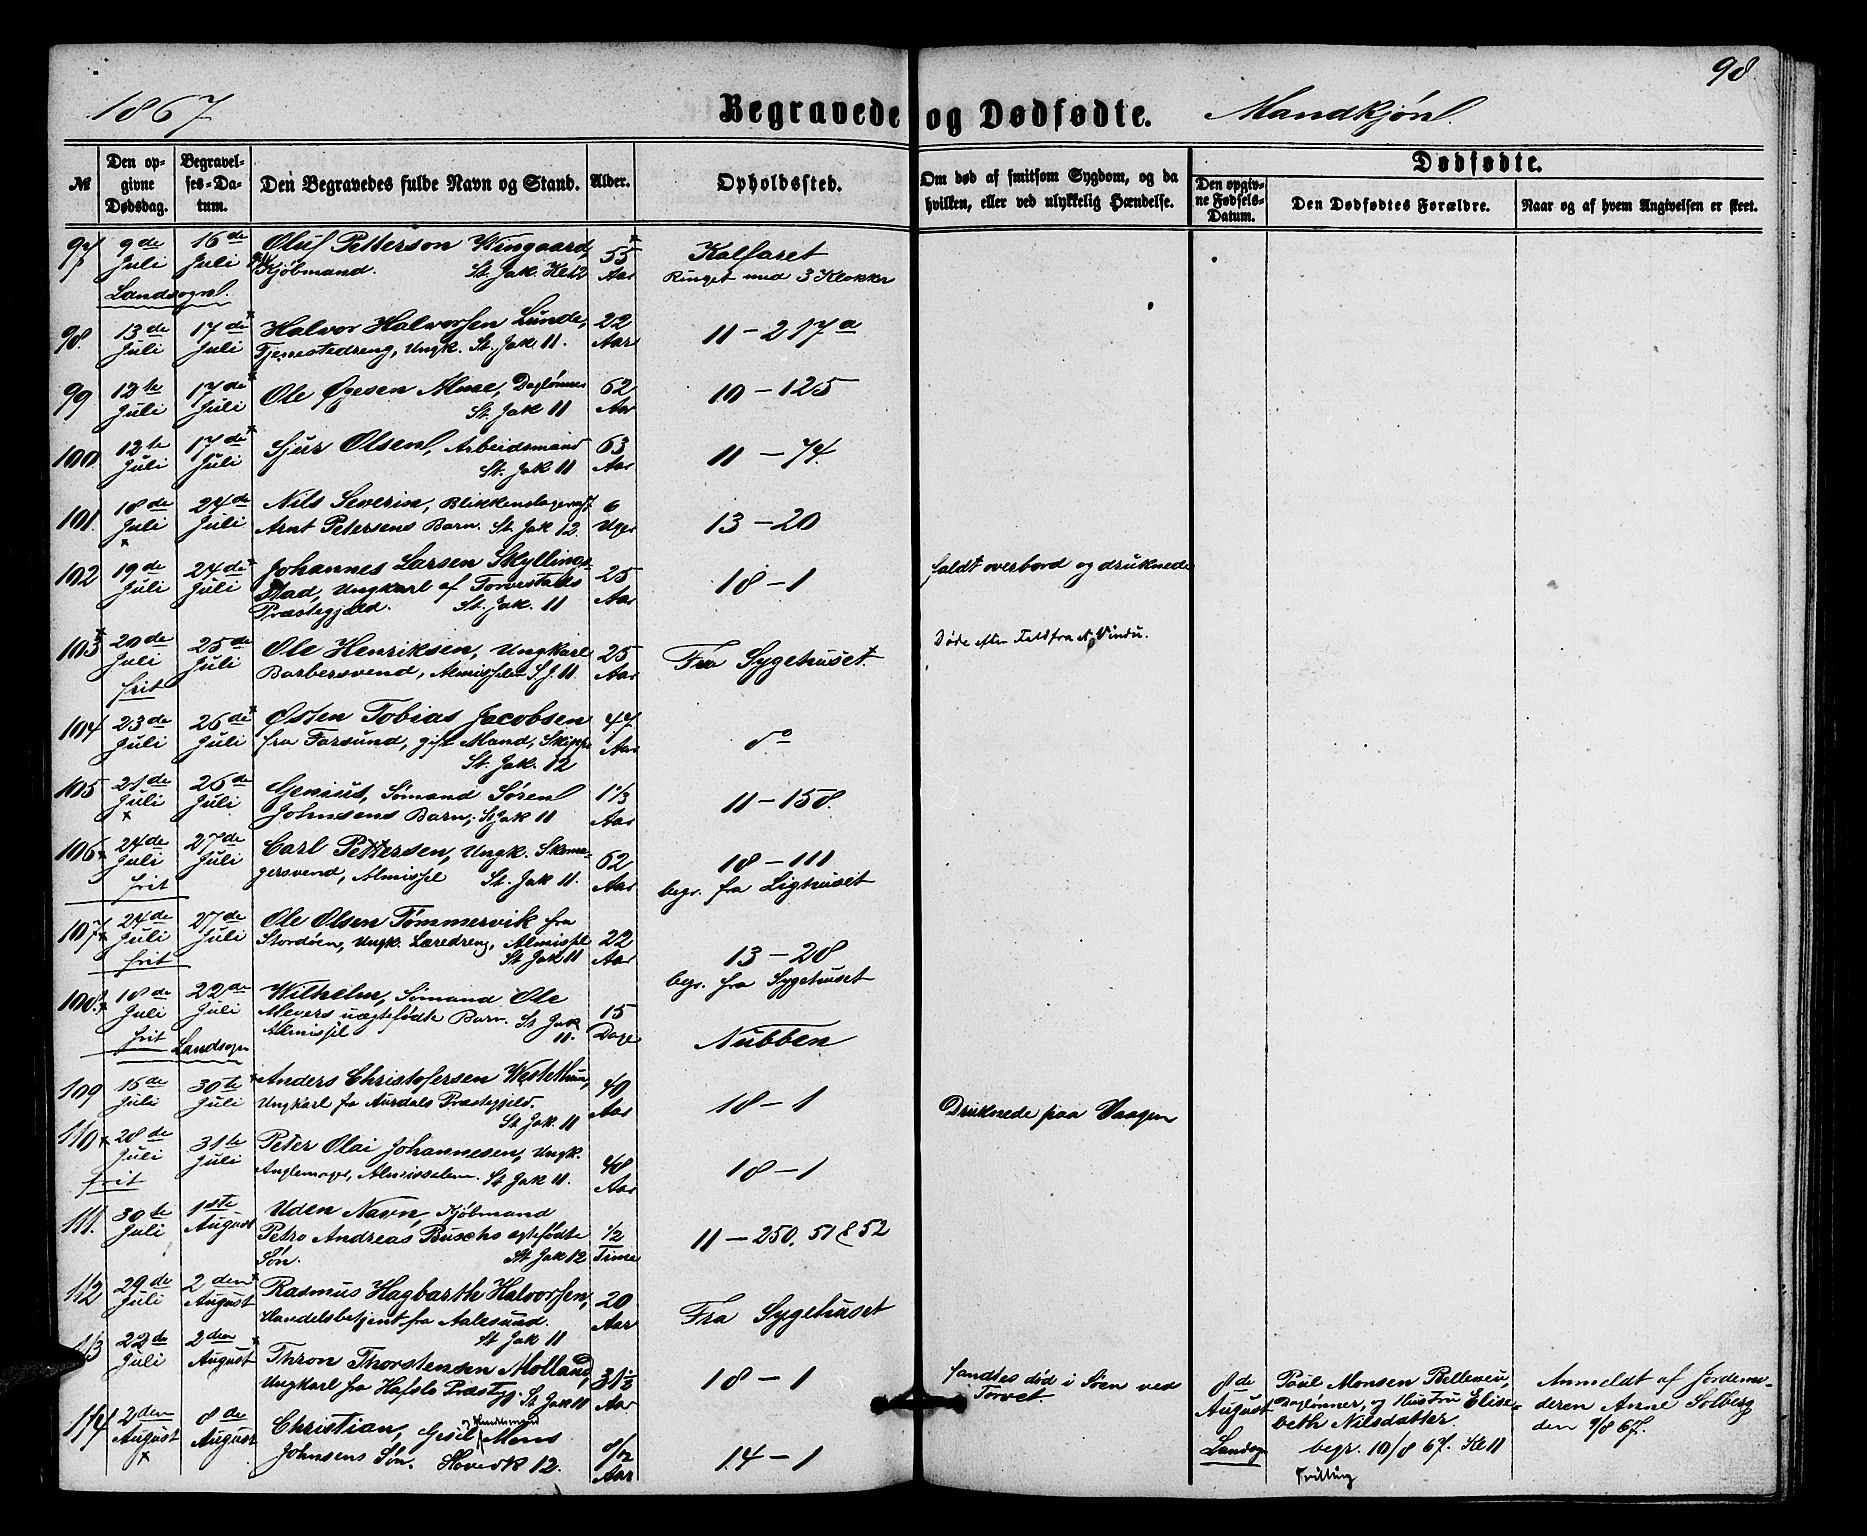 98
1867
Begravede og Dødfødte. Mandkjøn.
№
Den opgivne Dødsdag.
Begravelses-Datum.
Den Begravedes fulde Navn og Stand.
Alder.
Opholdssted.
Om død af smitsom Sygdom, og da hvilken, eller ved ulykkelig Hændelse.
Dødfødte.
Den opgivne Fødsels-Datum.
Den Dødfødtes Forældre.
Naar og af hvem Angivelsen er skeet.
97 9de Juli 16de Juli Oluf Petterson Wingaard, 55 Aar Kalfaret
Kjøbmand. St. Jak. Kl 12 Ringet med 3 Klokker
Landsogn.
98. 13de Juli 17de Juli Halvor Halvorsen Lunde, 22 Aar 11 – 217a
Tjenestedreng, Ungk. St. Jak. 11.
99 12te Juli 17de Juli Ole Øgesen Muse, Daglønner 62 Aar 10 – 125
St. Jak 11
100 12te Juli 17de Juli Sjur Olsen, Arbeidsmand 63 Aar 11 – 74.
St. Jak 11
101. 18de Juli 24de Juli Nils Severin, Blikkenslagersv. 6 Uger 13 – 20
Arnt Petersens Barn. St. Jak 12.
102 19de Juli 24de Juli Johannes Larsen Skyllings- 25 Aar 18 – 1 faldt overbord og druknede
stad, Ungkarl af Torvestads
Præstegjæld. St. Jak. 11
103 20de Juli 25de Juli Ole Henriksen, Ungkarl 25 Aar Fra Sygehuset Døde efter Fald fra et Vindu.
frit Barbersvend, Almisselem S. J. 11
104 23de Juli 26de Juli Østen Tobias Jacobsen 47 Aar do
fra Farsund, gift Mand, Skipper
St. Jak. 12
105 21de Juli 26de Juli Genius, Sømand Søren 1 1/3 Aar 11 – 158.
Johnsens Barn, St Jak 11
106 24de Juli 27de Juli Carl Pettersen, Ungk. Skoma- 62 Aar 18 – 111
frit gersvend, Almissel St. Jak 11. begr. fra Lighuset
107 24de Juli 27de Juli Ole Olsen Tømmervik fra 22 Aar 13 – 28
frit Stordøen, Ungk. Læredreng, Almissel begr. fra Sygehuset
St Jak 11
108. 18de Juli 22de Juli Wilhelm, Sømand Ole 15 Dage Nubben
frit Meyers uægtefødte Barn. St Jak
Landsogn Almissel 11.
109 15de Juli 30te Juli Anders Christofersen Westethun, 40 Aar 18 – 1 Druknede paa Vaagen
Ungkarl fra Aurdals Præstegjeld.
St. Jak. 11
110 28de Juli 31te Juli Peter Olai Johannesen, Ungk. 48 Aar 18 – 1
frit Anglemager, Almisselem. St Jak 11.
111. 30te Juli 1ste August Uden Navn, Kjøbmand 1/2 Time 11 – 250. 51 & 52
Petro Andreas Buschs ægtefødte
Søn. St Jak 12
112 29de Juli 2den August Rasmus Hagbarth Halvorsen, 20 Aar Fra Sygehuset
Handelsbetjent fra Aalesund.
St Jak 11
113 22de Juli 2den August Thron Thorstensen Molland, 31 1/2 Aar 18 – 1 fandtes død i Søen ved
Ungkarl fra Hafslo Præstgj. St Jak 11 Torvet.
114 2den August 8de August Christian, Gesel og Handelsmand Mons 8/12 Aar 14 – 1
Johnsens Søn. Hovedk 12.
8de August Landsogn
Paul Monsen Belleveu,
Daglønner, og Hustru Elise-
beth Nilsdatter.
begr. 10/8 67. Kl 11
Anmeldt af Jordemo-
deren Anne Solberg
den 9/8 67.